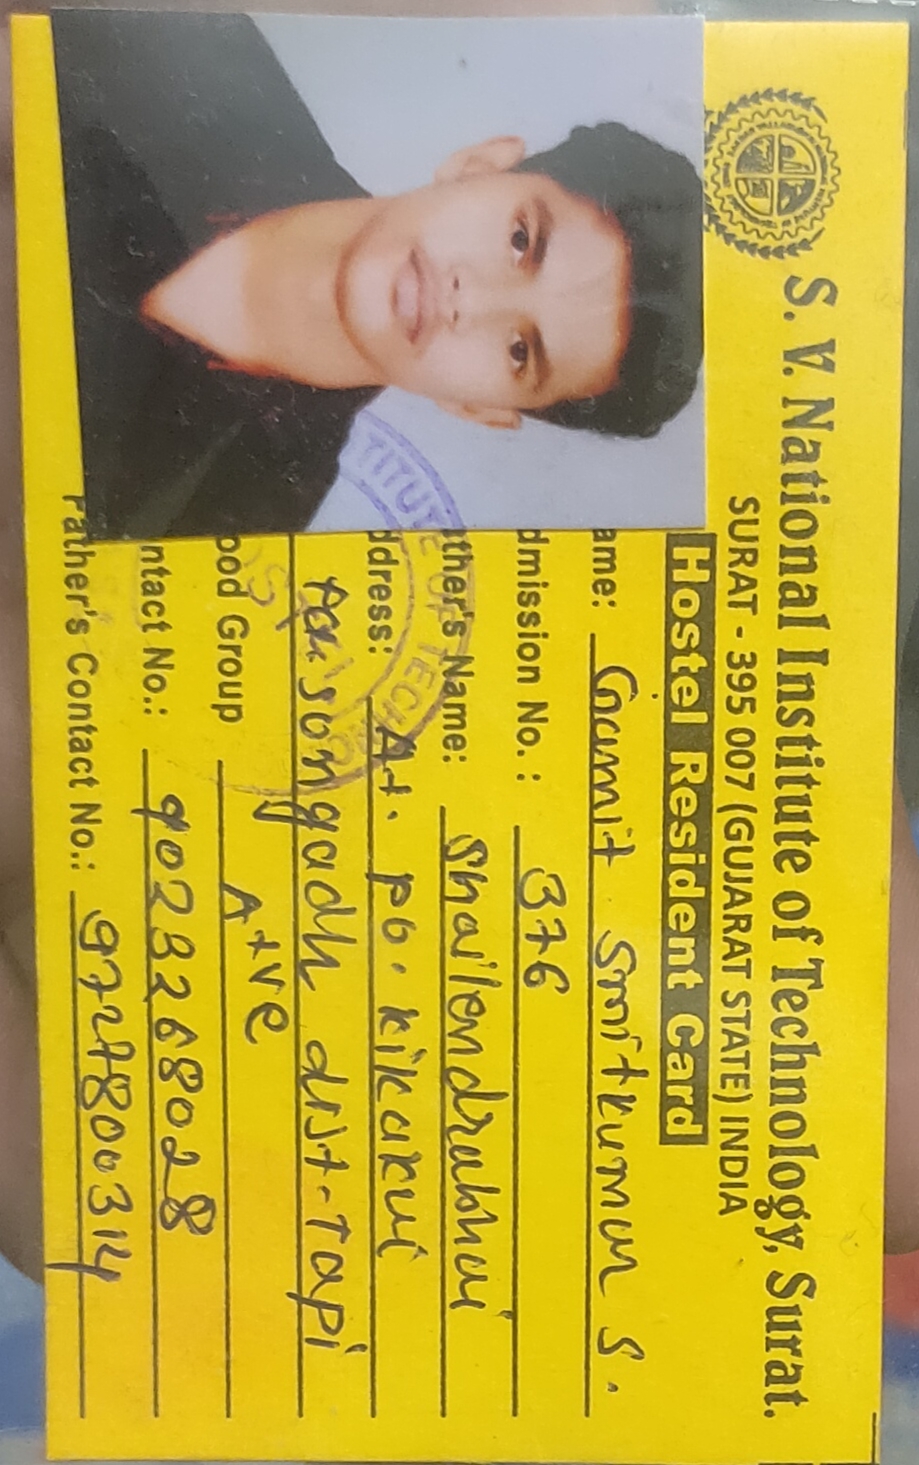 S. V. National Institute of Technology, Surat.
SURAT - 395 007 (GUJARAT STATE) INDIA
Hostel Resident Card
ame: Gamit Smitkumar S.
dmission No. : 376
ther's Name: Shailendrabhai
ddress: At. po. kikakui
ta. songadh dist-Tapi
ood Group A+ve
ntact No.: 9023268028
Father's Contact No.: 9727800314
TITUTE OF TECHNO